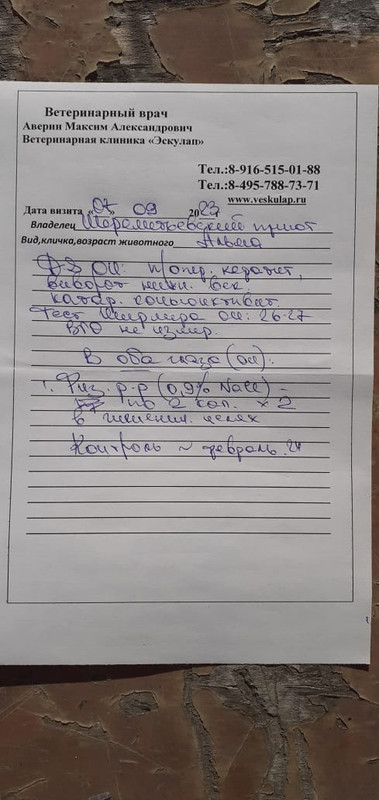 Ветеринарный врач
Аверин Максим Александрович
Ветеринарная клиника «Эскулап»
Тел.:8-916-515-01-88
Тел.:8-495-788-73-71
www.veskulap.ru
Дата визита «07 09 2023
Владелец Шереметьевский приют
Вид,кличка,возраст животного Альма
DS OU: п/опер. кератит,
выворот нижн. век.
катар. конъюнктивит.
Тест Ширмера OU: 26-27
ВГД не измер.
В оба глаза (OU):
1. Физ. р-р (0,9% NaCl) -
по 2 кап. х 2
в гигиенич. целях
Контроль ~ февраль 24